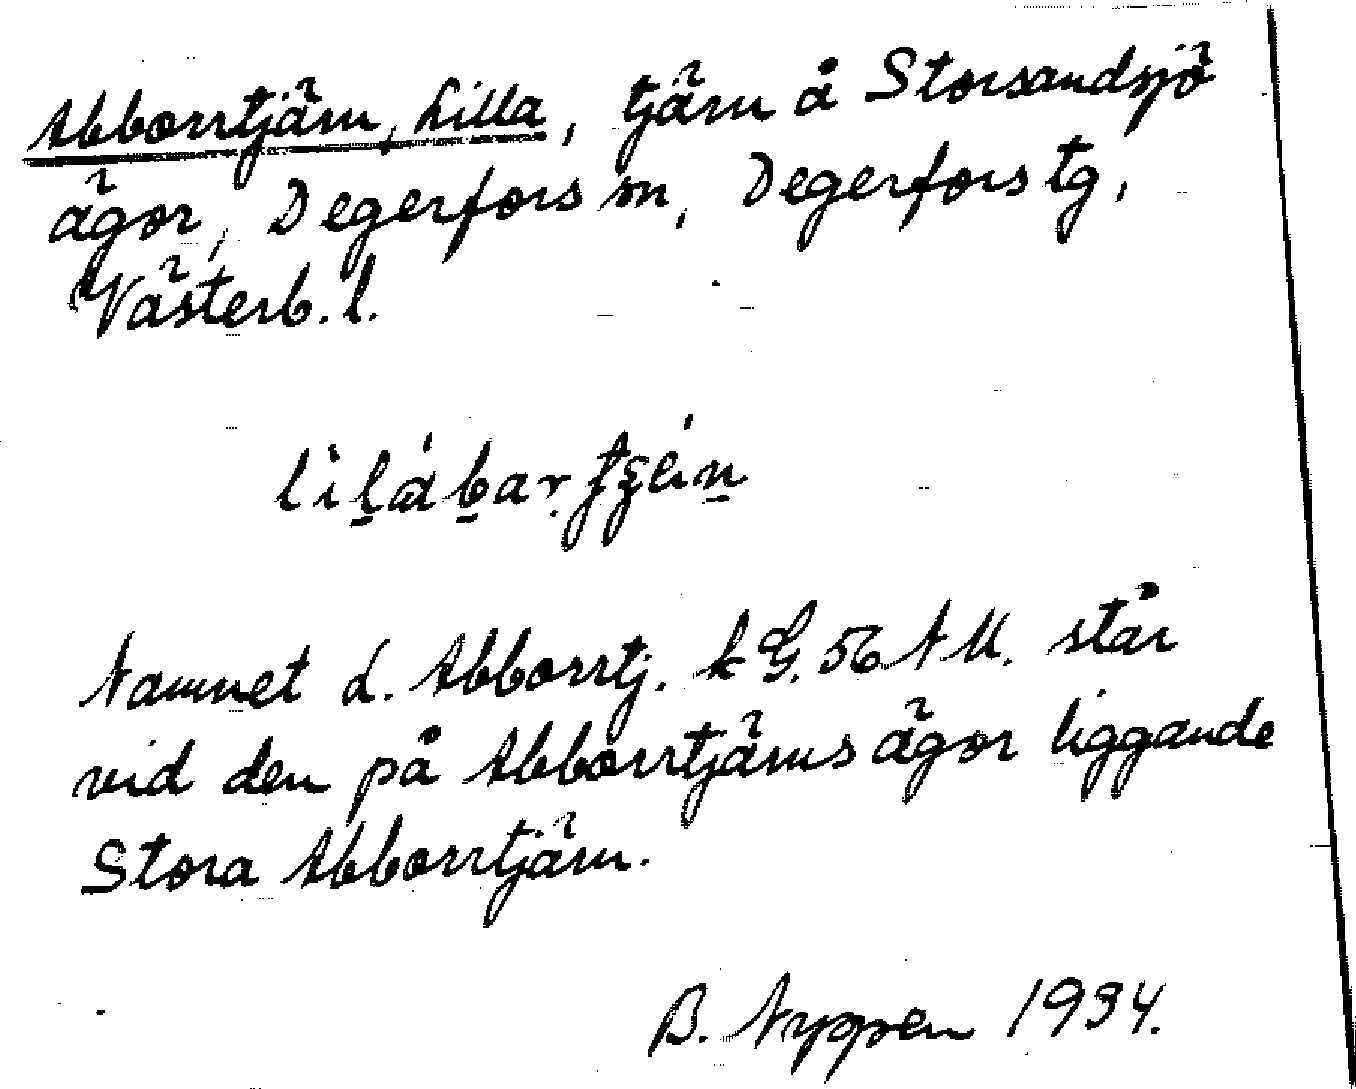 Abborrtjärn, Lilla, tjärn å Storsandsjö
ägor, Degerfors sn, Degerfors tg,
Västerb. l.
Namnet L. Abborrtj. k G. 56 NV. står
vid den på Abborrtjärns ägor liggande
Stora Abborrtjärn.
B. Nyppen 1934.